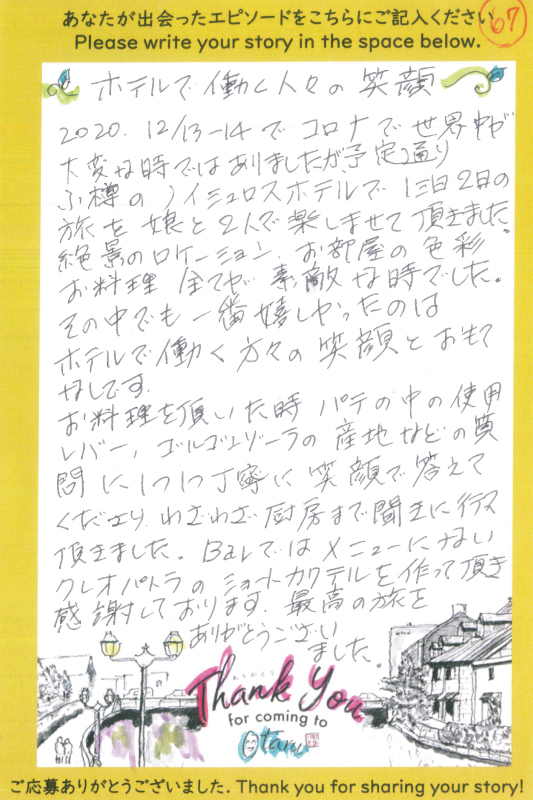 あなたが出会ったエピソードをこちらにご記入ください
67
Please write your story in the space below.
ホテルで働く人々の笑顔
2020. 12/13-14で コロナで世界中が
大変な時ではありましたが予定通り
小樽のノイシュロスホテルで 1泊2日の
旅を娘と2人で楽しませて頂きました。
絶景のロケーション、お部屋の色彩
お料理 全てが 素敵な時でした。
その中でも一番嬉しかったのは
ホテルで働く方々の笑顔とおもて
なしです.
お料理を頂いた時 パテの中の使用
レバー, ゴルゴンゾーラの産地などの質
問に1つ1つ丁寧に笑顔で答えて
くださり わざわざ厨房まで聞きに行って
頂きました。Barではメニューにはない
クレオパトラのショートカクテルを作って頂き
感謝しております. 最高の旅を
ありがとうござい
ました。
ありがとう
Thank You
for coming to
Otaru
ご応募ありがとうございました. Thank you for sharing your story!